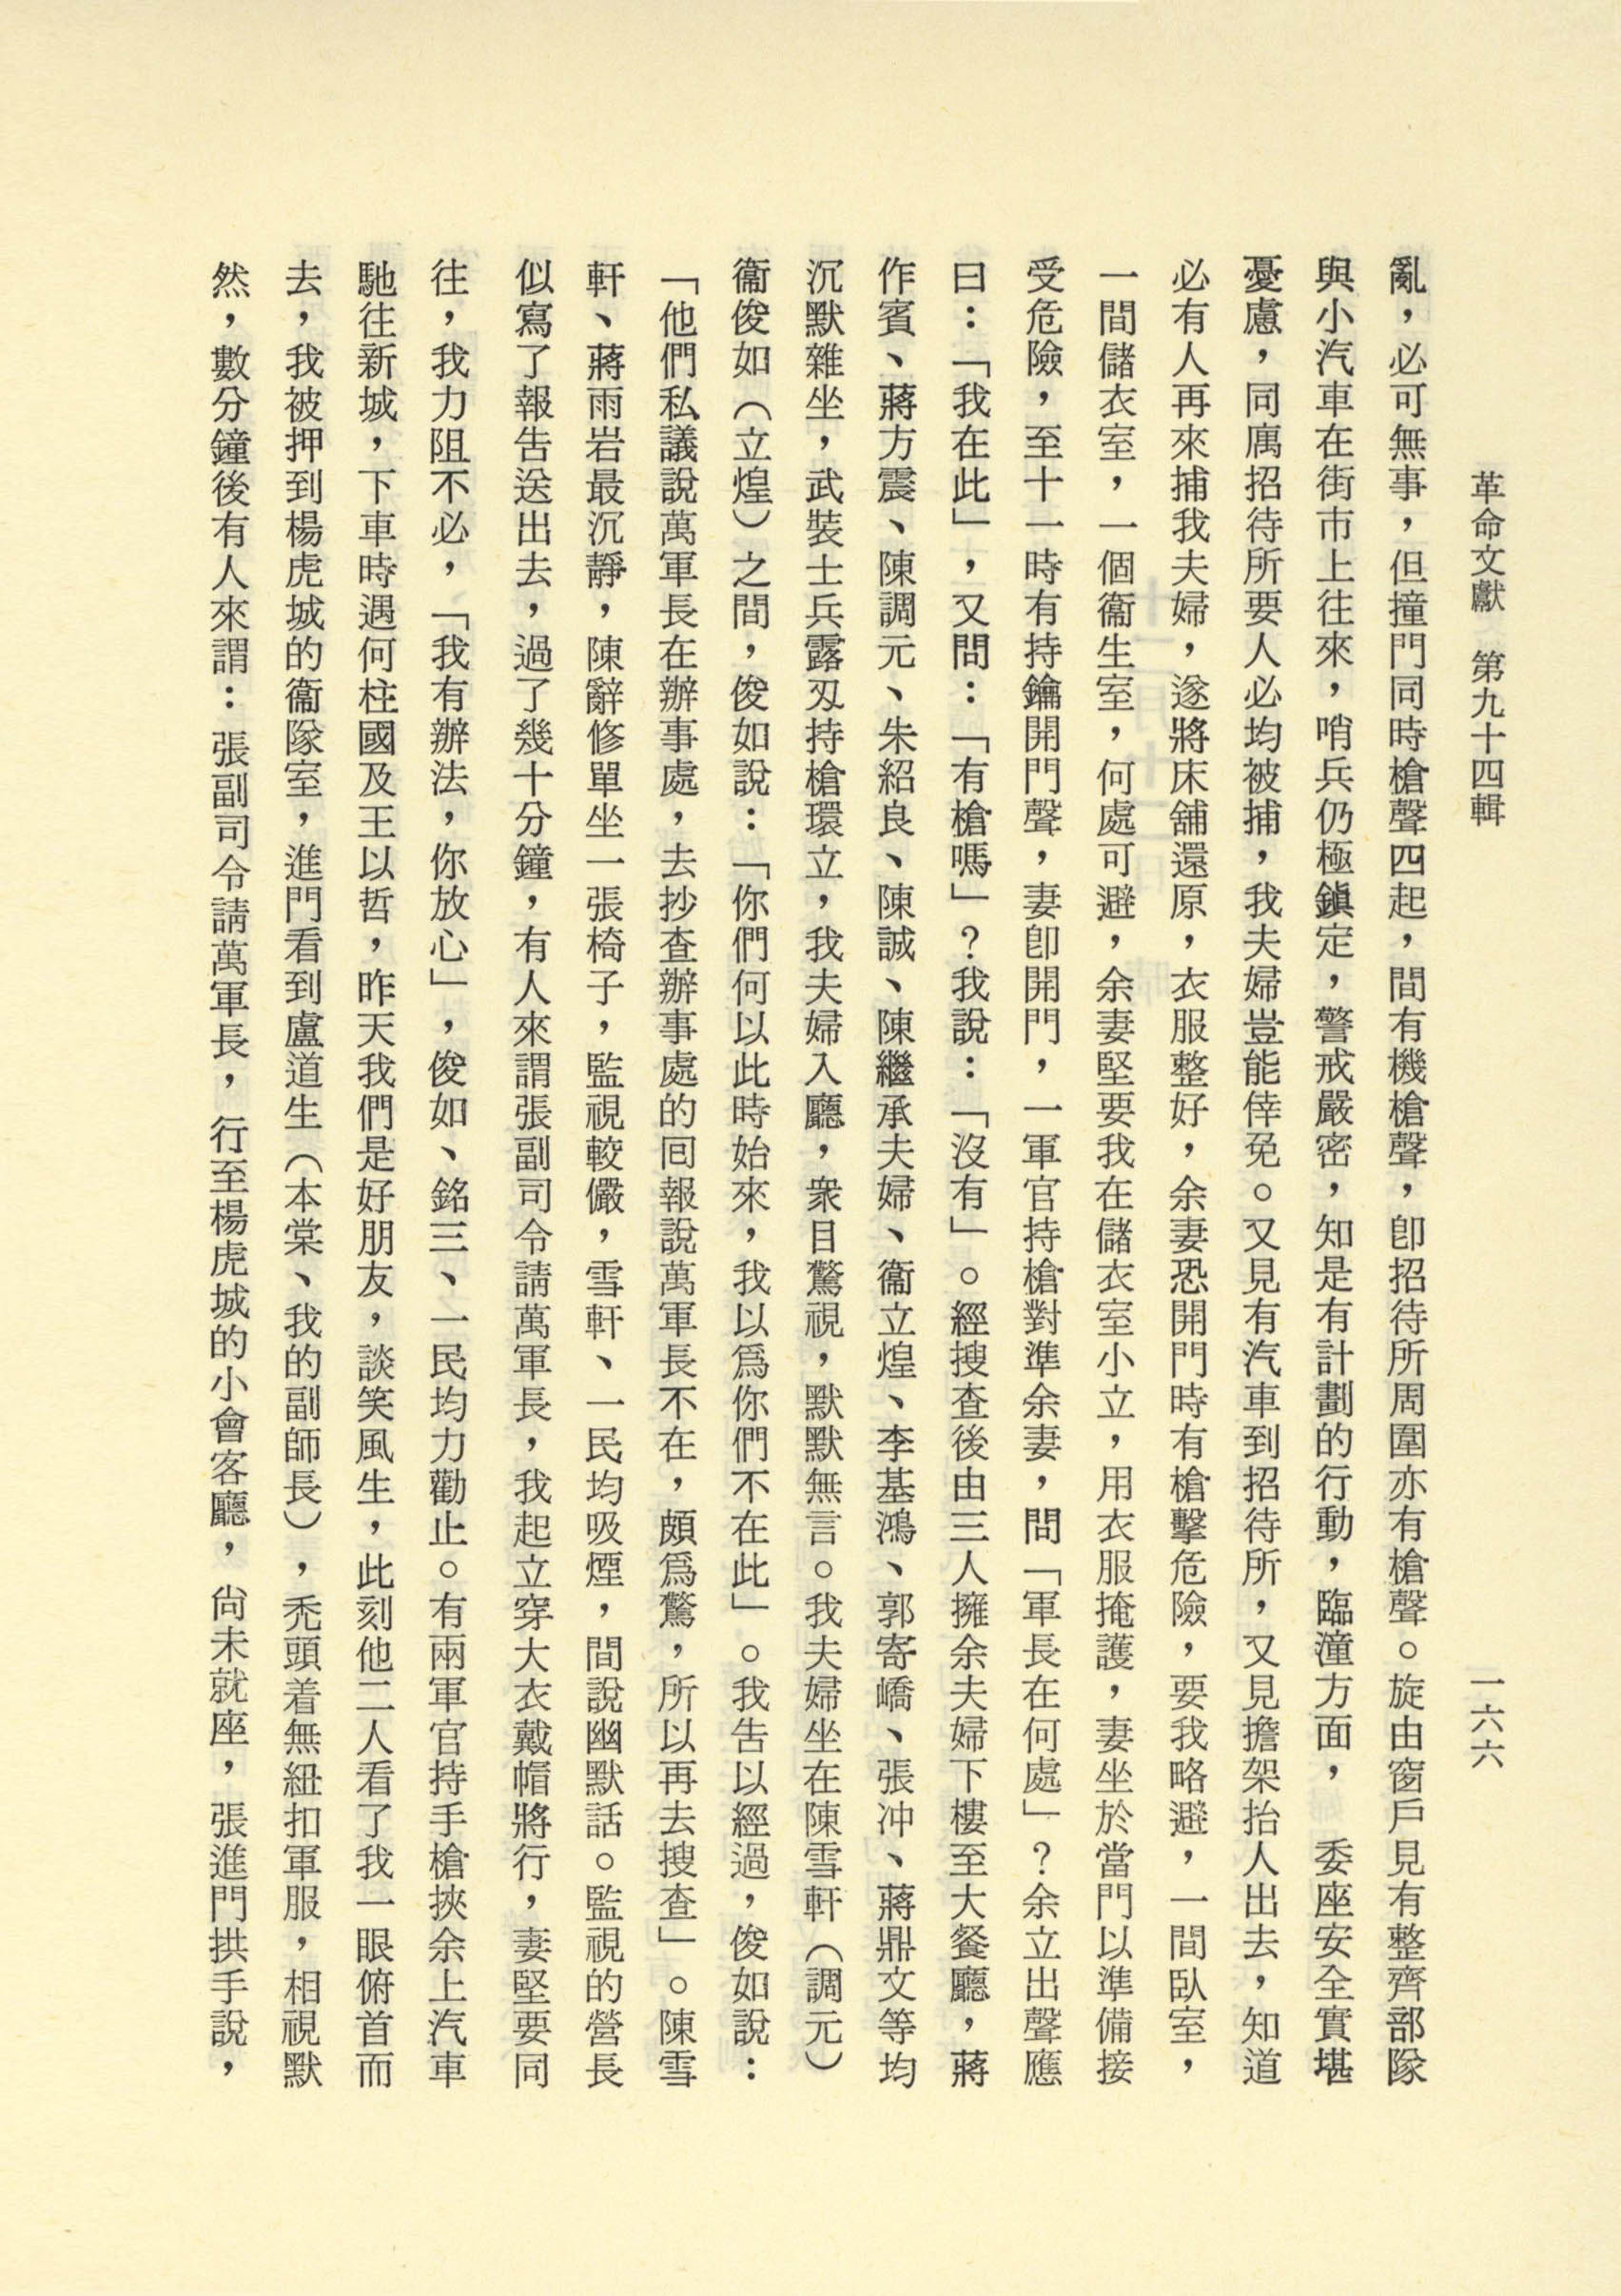 革命文獻　第九十四輯
一六六
亂，必可無事，但撞門同時槍聲四起，間有機槍聲，卽招待所周圍亦有槍聲。旋由窗戶見有整齊部隊
與小汽車在街市上往來，哨兵仍極鎭定，警戒嚴密，知是有計劃的行動，臨潼方面，　委座安全實堪
憂慮，同寓招待所要人必均被捕，我夫婦豈能倖免。又見有汽車到招待所，又見擔架抬人出去，知道
必有人再來捕我夫婦，遂將床舖還原，衣服整好，余妻恐開門時有槍擊危險，要我略避，一間臥室，
一間儲衣室，一個衞生室，何處可避，余妻堅要我在儲衣室小立，用衣服掩護，妻坐於當門以準備接
受危險，至十一時有持鑰開門聲，妻卽開門，一軍官持槍對準余妻，問「軍長在何處」？余立出聲應
曰：「我在此」，又問：「有槍嗎」？我說：「沒有」。經搜查後由三人擁余夫婦下樓至大餐廳，蔣
作賓、蔣方震、陳調元、朱紹良、陳誠、陳繼承夫婦、衞立煌、李基鴻、郭寄嶠、張冲、蔣鼎文等均
沉默雜坐，武裝士兵露刄持槍環立，我夫婦入廳，衆目驚視，默默無言。我夫婦坐在陳雪軒（調元）
衞俊如（立煌）之間，俊如說：「你們何以此時始來，我以爲你們不在此」。我吿以經過，俊如說：
「他們私議說萬軍長在辦事處，去抄查辦事處的囘報說萬軍長不在，頗爲驚，所以再去搜查」。陳雪
軒、蔣雨岩最沉靜，陳辭修單坐一張椅子，監視較儼，雪軒、一民均吸煙，間說幽默話。監視的營長
似寫了報吿送出去，過了幾十分鐘，有人來謂張副司令請萬軍長，我起立穿大衣戴帽將行，妻堅要同
往，我力阻不必，「我有辦法，你放心」，俊如、銘三、一民均力勸止。有兩軍官持手槍挾余上汽車
馳往新城，下車時遇何柱國及王以哲，昨天我們是好朋友，談笑風生，此刻他二人看了我一眼俯首而
去，我被押到楊虎城的衞隊室，進門看到盧道生（本棠、我的副師長），禿頭着無紐扣軍服，相視默
然，數分鐘後有人來謂：張副司令請萬軍長，行至楊虎城的小會客廳，尙未就座，張進門拱手說，